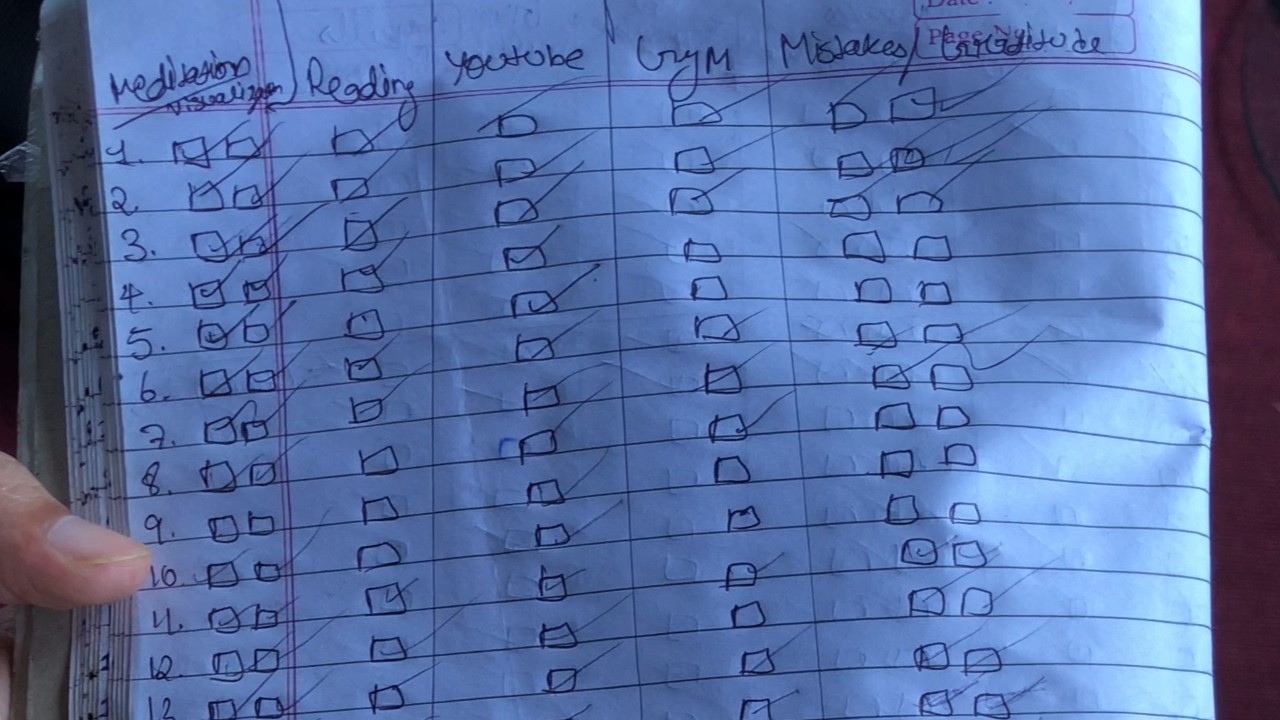 Date :
Page No
Meditation Reading Youtube Gym Mistakes/ Gratitude
Visualization
1.
2.
3.
4.
5.
6.
7.
8.
9.
10.
11.
12.
13